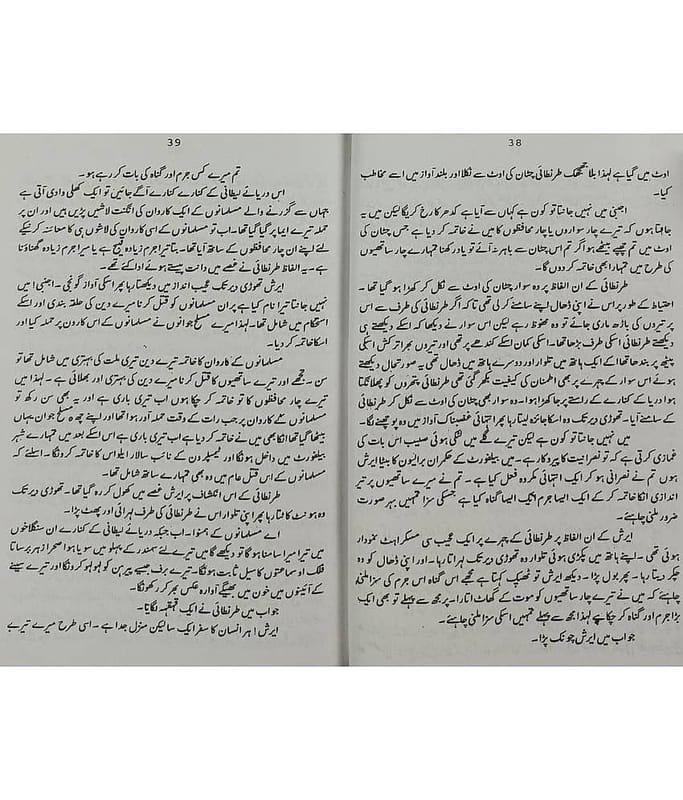 38
اوٹ میں گیا ہے لہذا بلا جھجھک طرنطائی چٹان کی اوٹ سے نکلا اور بلند آواز میں اسے مخاطب
کیا۔
اجنبی میں نہیں جانتا تو کون ہے کہاں سے آیا ہے کدھر کا رخ کریگا لیکن میں یہ
جاہتا ہوں کہ تیرے چار سواروں یا چار محافظوں کا میں نے خاتمہ کر دیا ہے جس چٹان کی
اوٹ میں تم چھپے بیٹھے ہو اگر تم اس چٹان سے باہر نہ آئے تو یاد رکھنا تمہارے چار ساتھیوں
کی طرح میں تمہارا بھی خاتمہ کر دوں گا۔
طرنطائی کے ان الفاظ پر وہ سوار چٹان کی اوٹ سے نکل کر کھڑا ہو گیا تھا۔
احتیاط کے طور پر اس نے اپنی ڈھال اپنے سامنے کر لی تھی تاکہ اگر طرنطائی کی طرف سے اس
پر تیروں کی باڑھ ماری جائے تو وہ محفوظ رہے لیکن اس سوار نے دیکھا کہ دیکھتے ہی
دیکھتے طرنطائی اسکی طرف بڑھا تھا۔ اسکی کمان اسکے کندھے پر تھی اور تیروں بھرا ترکش اسکی
پیٹھ پر بندھا تھا اسکے ایک ہاتھ میں تلوار اور دوسرے ہاتھ میں ڈھال تھی یہ صورتحال دیکھتے
ہوئے اس سوار کے چہرے پر بھی اطمنان کی کیفیت بکھر گئی تھی طرنطائی پتھروں کو پھلانگتا
ہوا دریا کے کنارے کے راستے پر جا کھڑا ہوا۔ وہ سوار بھی چٹان کی اوٹ سے نکل کر طرنطائی
کے سامنے آیا۔ تھوڑی دیر تک وہ اسکا جائزہ لیتا رہا پھر انتہائی غضبناک آواز میں وہ پوچھنے لگا۔
میں نہیں جانتا تو کون ہے لیکن تیرے گلے میں لٹکی ہوئی صلیب اس بات کی
غمازی کرتی ہے کہ تو نصرانیت کا پیروکار ہے۔ میں بیلفورٹ کے حکمران برالیون کا بیٹا ایرش
ہوں تم نے نصرانی ہو کر ایک انتہائی مکروہ فعل کیا ہے۔ تم نے میرے ساتھیوں پر تیر
اندازی انکا خاتمہ کر کے ایک ایسا جرم ایک ایسا گناہ کیا ہے جسکی سزا تمہیں بہر صورت
ضرور ملنی چاہئے۔
ایرش کے ان الفاظ پر طرنطائی کے چہرے پر ایک عجیب سی مسکراہٹ نمودار
ہوئی تھی۔ اپنے ہاتھ میں پکڑی ہوئی تلوار وہ تھوڑی دیر تک لہراتا رہا۔ اور اپنی ڈھال کو وہ
چکر دیتا رہا۔ پھر بول پڑا۔ دیکھ ایرش تو ٹھیک کہتا ہے مجھے اس گناہ اس جرم کی سزا ملنی
چاہئے کہ میں نے تیرے چار ساتھیوں کو موت کے گھاٹ اتارا۔ پر مجھ سے پہلے تو بھی ایک
بڑا جرم اور گناہ کر چکا ہے لہذا مجھ سے پہلے تمہیں اسکی سزا ملنی چاہئے۔
جواب میں ایرش چونک پڑا۔
39
تم میرے کس جرم اور گناہ کی بات کر رہے ہو۔
اس دریائے لیطانی کے کنارے کنارے آگے جائیں تو ایک کھلی وادی آتی ہے
جہاں سے گزرنے والے مسلمانوں کے ایک کاروان کی انگنت لاشیں پڑیں ہیں اور ان پر
حملہ تیرے ایما پر کیا گیا تھا۔ اب تو مسلمانوں کے اسی کاروان کی لاشوں ہی کا معائنہ کرنیکے
لئے اپنے ان چار محافظوں کے ساتھ آیا تھا۔ بتا تیرا جرم زیادہ قبیح ہے یا میرا جرم زیادہ گھناؤنا
ہے۔ یہ الفاظ طرنطائی نے غصے میں دانت پیستے ہوئے ادا کئے تھے۔
ایرش تھوڑی دیر تک عجیب انداز میں دیکھتا رہا پھر اسکی آواز گونجی۔ اجنبی! میں
نہیں جانتا تیرا نام کیا ہے پر ان مسلمانوں کو قتل کرنا میرے دین کی حلقہ بندی اور اسکے
استحکام میں شامل تھا۔ لہذا میرے مسلح جوانوں نے مسلمانوں کے اس کارون پر حملہ کیا اور
اسکا خاتمہ کر دیا۔
مسلمانوں کے کاروان کا خاتمہ تیرے دین تیری ملت کی بہتری میں شامل تھا تو
سن۔ تجھے اور تیرے ساتھیوں کا قتل کرنا میرے دین کی بہتری اور بھلائی ہے۔ لہذا میں
تیرے چار محافظوں کا تو خاتمہ کر چکا ہوں اب تیری باری ہے اور یہ بھی سن رکھ تو
مسلمانوں کے کاروان پر جب رات کے وقت حملہ آور ہوا تھا اور اپنے چھ مسلح جوان یہاں
بیٹھا گیا تھا انکا بھی میں نے خاتمہ کر دیا ہے اب تیری باری ہے اسکے بعد میں تمہارے شہر
بیلفورٹ میں داخل ہونگا اور ٹیمپلر دن کے نائب سالار ایلو اس کا خاتمہ کرونگا۔ اسلئے کہ
مسلمانوں کے اس قتل عام میں وہ بھی تمہارے ساتھ شامل تھا۔
طرنطائی کے اس انکشاف پر ایرش غصے میں کھول کر رہ گیا تھا۔ تھوڑی دیر تک
وہ ہونٹ کاٹتا رہا پھر اپنی تلوار اس نے طرنطائی کی طرف لہرائی اور پھٹ پڑا۔
اے مسلمانوں کے ہمنوا۔ اب جبکہ دریائے لیطانی کے کنارے ان سنگلاخوں
میں تیرا میرا سامنا ہو گا تو دیکھے گا میں تیرے لئے سمندر کے پہلو میں سویا ہوا صحرا زہر برساتا
فلک او ساعتوں کا سیل ثابت ہونگا۔ تیرے برف جیسے پیرہن کو لہو لہو کرونگا اور تیرے سپنے
کے آئینوں میں خون میں بھیگے آوارہ عکس بھر کر رکھونگا۔
جواب میں طرنطائی نے ایک قہقہہ لگایا۔
ایرش! ہر انسان کا سفر ایک سا لیکن منزل جدا ہے۔ اسی طرح میرے تیرے